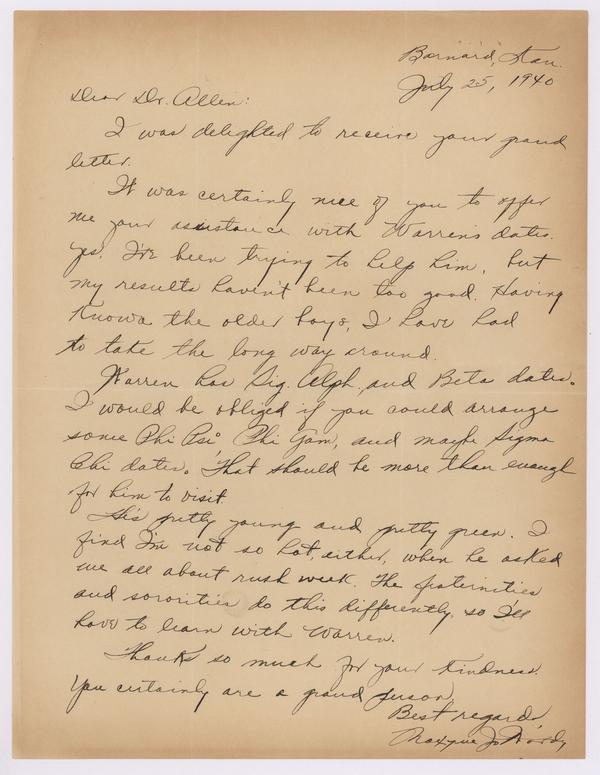 Barnard, Kan.
July 25, 1940
Dear Dr. Allen:
I was delighted to receive your grand
letter.
It was certainly nice of you to offer
me your assistance with Warren's dates.
Yes, I've been trying to help him, but
my results haven't been too good. Having
known the older boys, I have had
to take the long way around.
Warren has Sig. Alph. and Beta dates.
I would be obliged if you could arrange
some Phi Psi, Phi Gam, and maybe Sigma
Chi dates. That should be more than enough
for him to visit.
He's pretty young and pretty green. I
find I'm not so hot, either, when he asked
me all about rush week. The fraternities
and sororities do this differently, so I'll
have to learn with Warren.
Thanks so much for your kindness.
You certainly are a grand person.
Best regards,
Maxyne